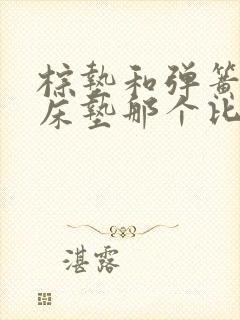 棕垫和弹簧
床垫那个比
湛露